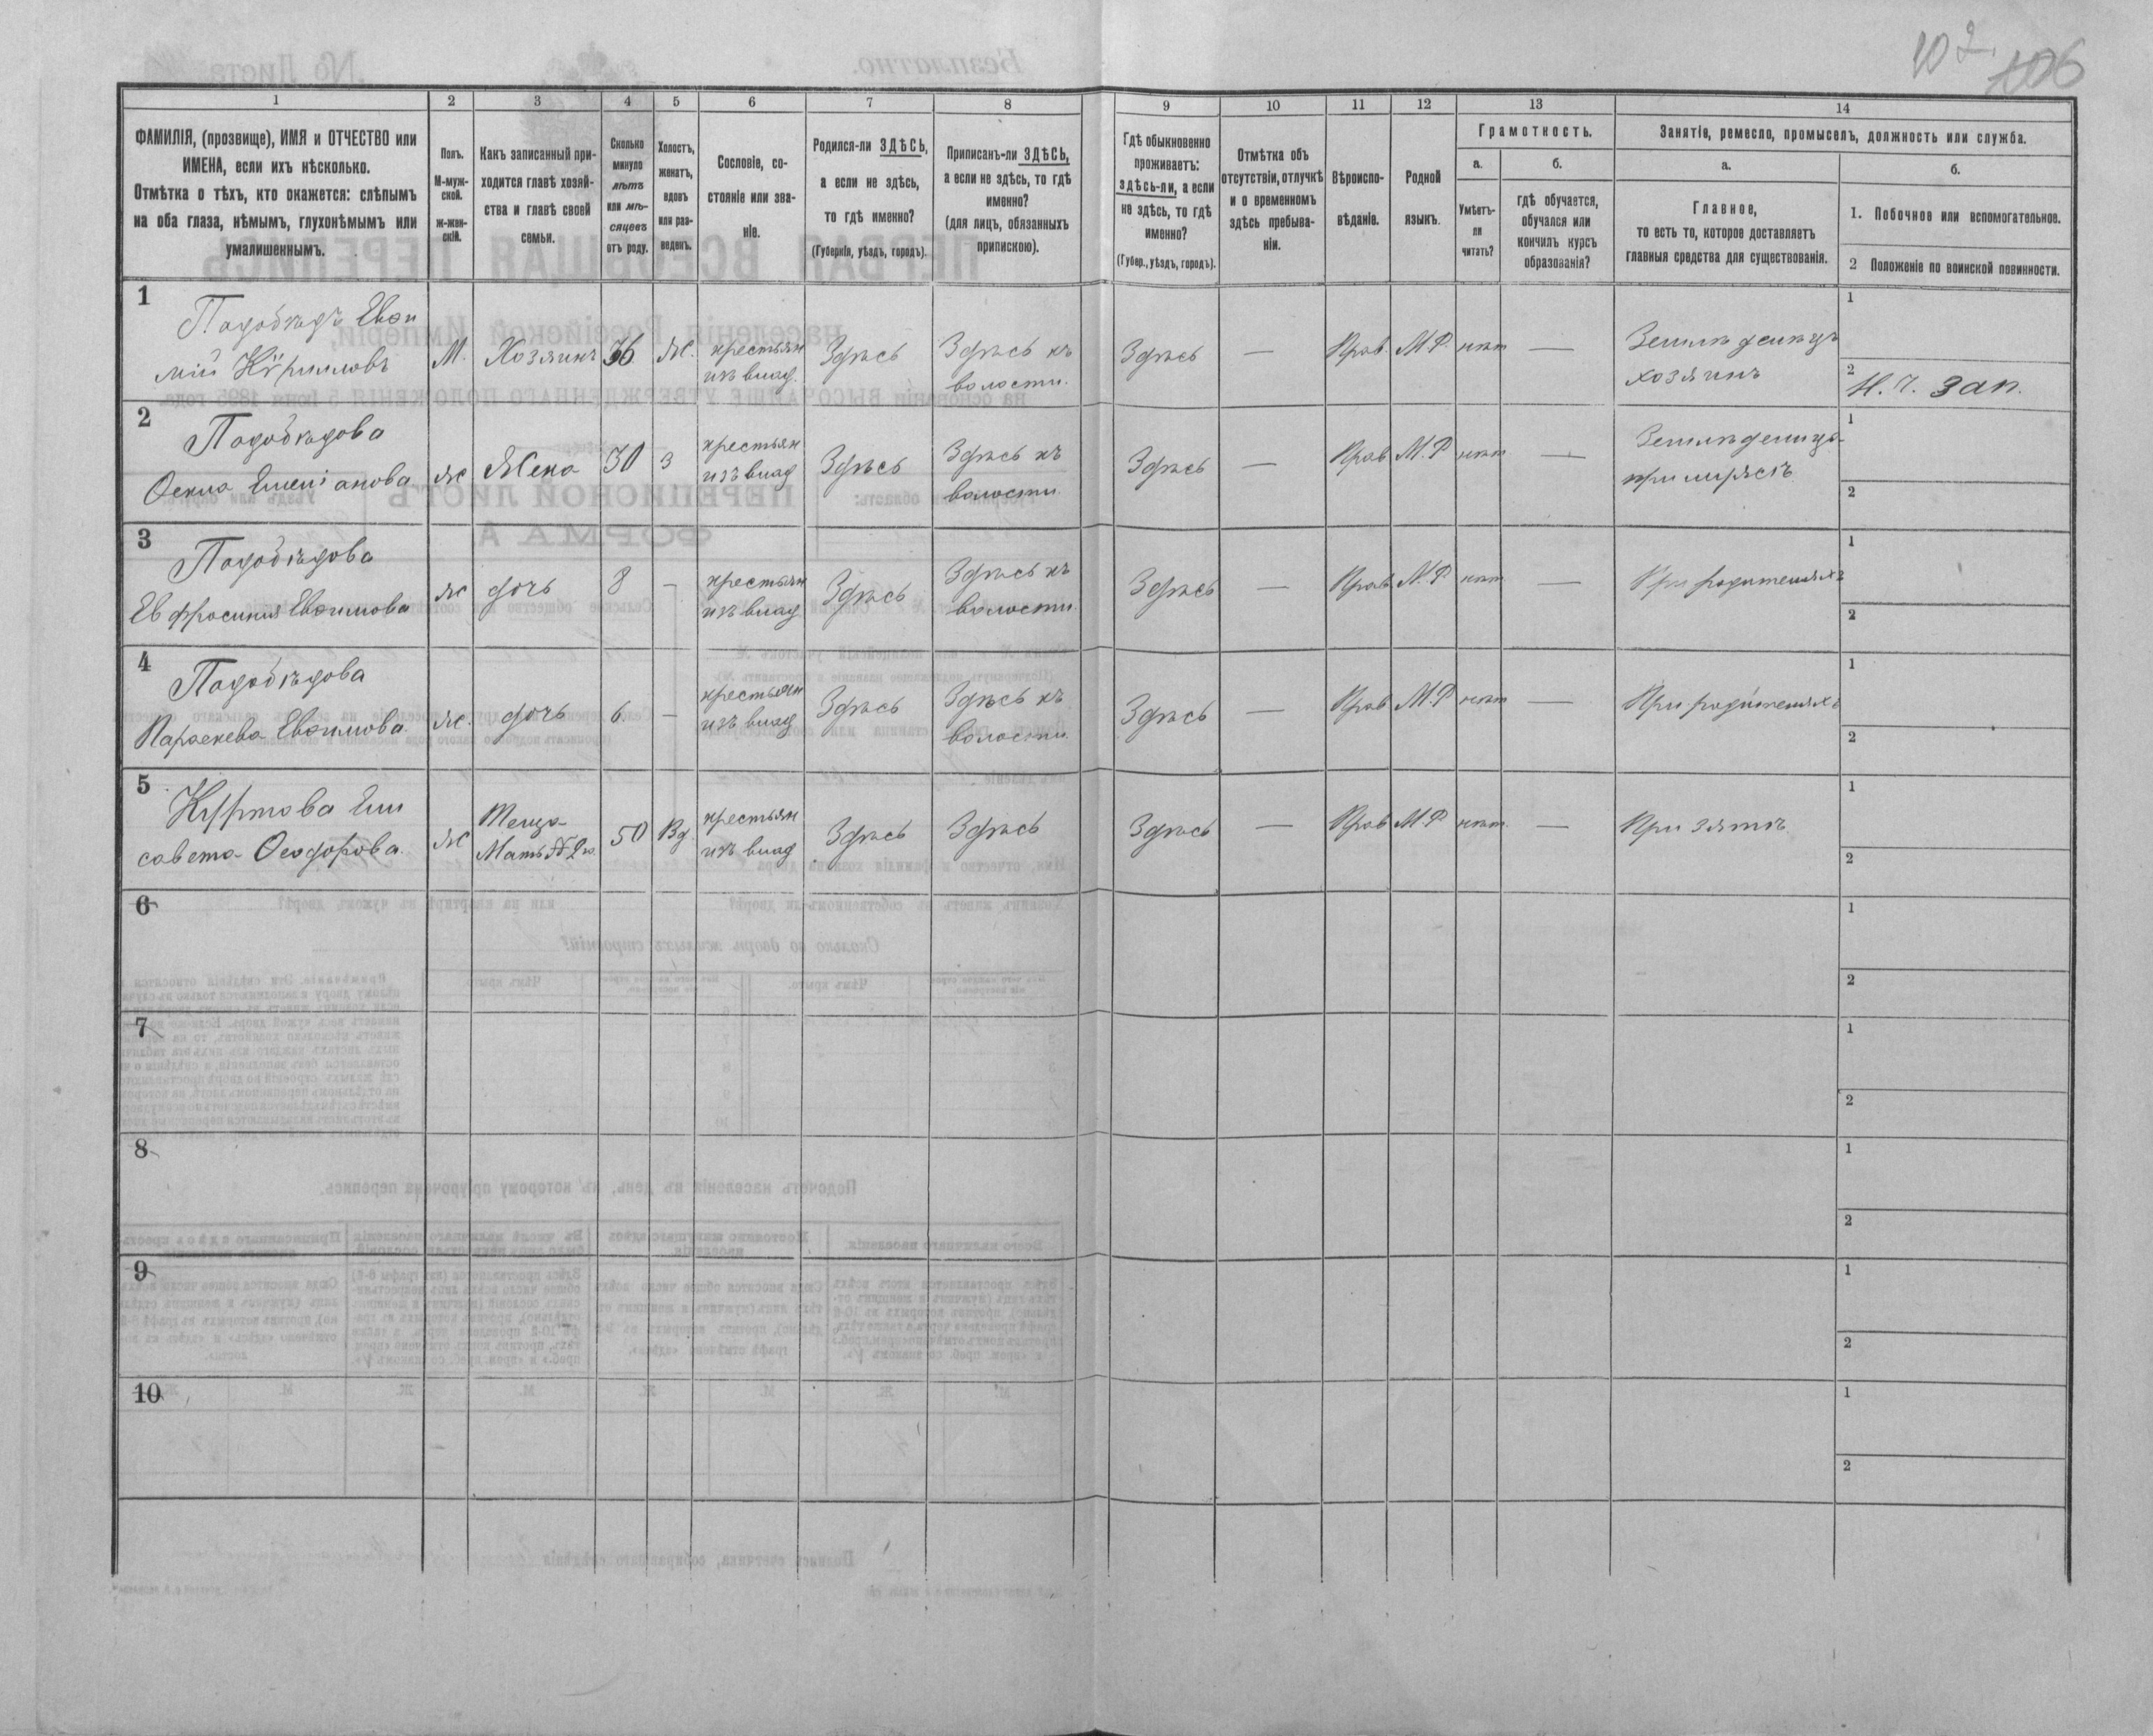 102.
106
1
2
3
4
5
6
7
8
9
10
11
12
13
14
ФАМИЛІЯ, (прозвище), ИМЯ и ОТЧЕСТВО или
ИМЕНА, если ихъ нѣсколько.
Отмѣтка о тѣхъ, кто окажется: слѣпымъ
на оба глаза, нѣмымъ, глухонѣмымъ или
умалишеннымъ.
Полъ.
М-муж-
ской.
ж-жен-
скій.
Какъ записанный при-
ходится главѣ хозяй-
ства и главѣ своей
семьи.
Сколько
минуло
лѣтъ
или мѣ-
сяцевъ
отъ роду.
Холостъ,
женатъ,
вдовъ
или раз-
веденъ.
Сословіе, со-
стояніе или зва-
ніе.
Родился-ли ЗДѢСЬ,
а если не здѣсь,
то гдѣ именно?
(Губернія, уѣздъ, городъ).
Приписанъ-ли ЗДѢСЬ,
а если не здѣсь, то гдѣ
именно?
(для лицъ, обязанныхъ
припискою).
Гдѣ обыкновенно
проживаетъ:
здѣсь-ли, а если
не здѣсь, то гдѣ
именно?
(Губер., уѣздъ, городъ).
Отмѣтка объ
отсутствіи, отлучкѣ
и о временномъ
здѣсь пребыва-
ніи.
Вѣроиспо-
вѣданіе.
Родной
языкъ.
Грамотность.
а.
Умѣетъ-
ли
читать?
б.
гдѣ обучается,
обучался или
кончилъ курсъ
образованія?
Занятіе, ремесло, промыселъ, должность или служба.
а.
Главное,
то есть то, которое доставляетъ
главныя средства для существованія.
б.
1. Побочное или вспомогательное.
2 Положеніе по воинской повинности.
1
Подобѣдъ Евѳи
мій Кѵрилловъ
М. Хозяинъ 36 Ж. крестьян Здѣсь Здѣсь къ Здѣсь — Прав. М.Р. нѣт — Земледѣлецъ
из влад. волости. хозяинъ
1
2 Н. Ч. зап.
2
Подобѣдова
Ѳекла Емеліанова
Ж Жена 30 З крестьян Здѣсь Здѣсь къ Здѣсь — Прав М.Р нѣт — Земледѣлица
изъ влад волости. при мужѣ
1
2
3
Подобѣдова
Евфросинія Евѳимова
Ж дочь 8 — крестьян Здѣсь Здѣсь къ Здѣсь — Прав М.Р нѣт — При родителяхъ
изъ влад волости.
1
2
4
Подобѣдова
Параскева Евѳимова.
Ж. дочь 6 — крестьян Здѣсь Здѣсь къ Здѣсь — Прав М.Р нѣт — При родителяхъ
изъ влад волости.
1
2
5
Куртова Ели
савета Ѳеодорова.
Ж Теща 50 Вд. крестьян Здѣсь Здѣсь Здѣсь — Прав М.Р нѣт — При зятѣ
Мать № 2го изъ влад
1
2
6
1
2
7
1
2
8
1
2
9
1
2
10
1
2